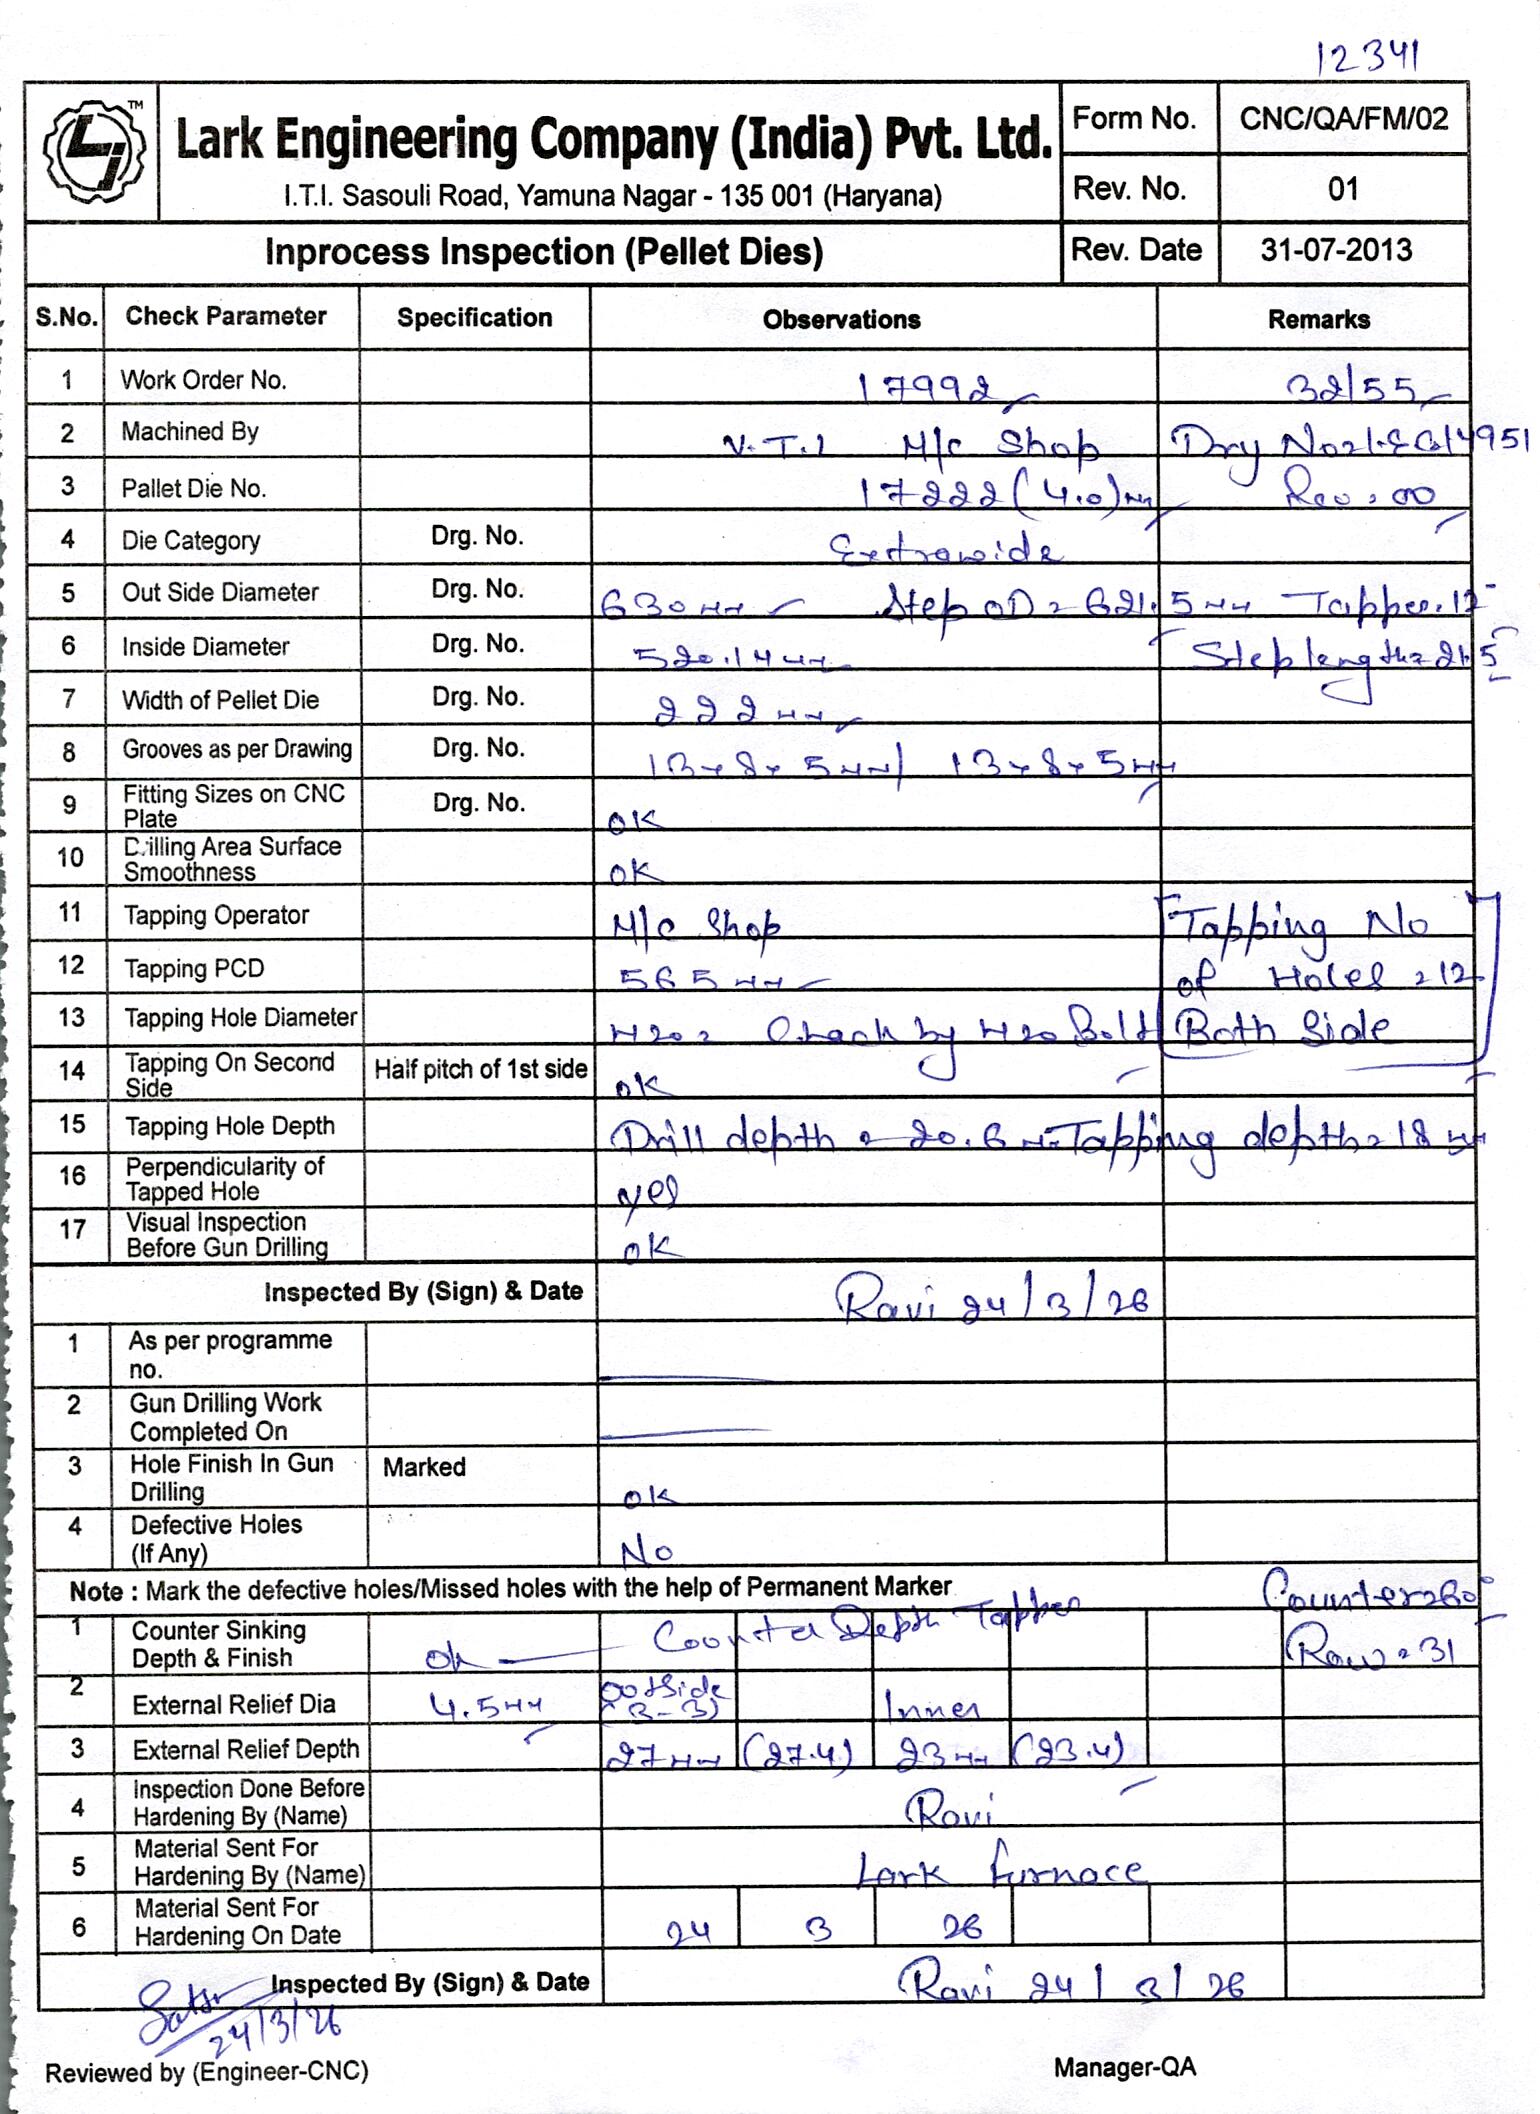 12341
Lark Engineering Company (India) Pvt. Ltd.
I.T.I. Sasouli Road, Yamuna Nagar - 135 001 (Haryana)
Form No. CNC/QA/FM/02
Rev. No. 01
Inprocess Inspection (Pellet Dies) Rev. Date 31-07-2013
S.No. Check Parameter Specification Observations Remarks
1 Work Order No. 17992 32/55
2 Machined By V.T.L M/c Shop Drg No
3 Pallet Die No. 17222 (4.0) mm Rev: 00
4 Die Category Drg. No. Extrawide
5 Out Side Diameter Drg. No. 630 mm Step OD = 621.5 mm Tapper. 12°
6 Inside Diameter Drg. No. 520.14 mm Step length = 21.5
7 Width of Pellet Die Drg. No. 222 mm
8 Grooves as per Drawing Drg. No. 13x8x5mm/ 13x8x5mm
9 Fitting Sizes on CNC Plate Drg. No. OK
10 Drilling Area Surface Smoothness OK
11 Tapping Operator M/c Shop Tapping No
12 Tapping PCD 565 mm of Holes = 12
13 Tapping Hole Diameter M20 = Check by M20 Bolt Both Side
14 Tapping On Second Side Half pitch of 1st side OK
15 Tapping Hole Depth Drill depth = 20.6 mm Tapping depth = 18 mm
16 Perpendicularity of Tapped Hole yes
17 Visual Inspection Before Gun Drilling OK
Inspected By (Sign) & Date Ravi 24/3/26
1 As per programme no.
2 Gun Drilling Work Completed On
3 Hole Finish In Gun Drilling Marked OK
4 Defective Holes (If Any) No
Note : Mark the defective holes/Missed holes with the help of Permanent Marker
Counter = 60°
1 Counter Sinking Depth & Finish ok Counter Depth Tapper Row = 31
2 External Relief Dia 4.5mm OutSide (3-3) Inner
3 External Relief Depth 27mm (27.4) 23mm (23.4)
4 Inspection Done Before Hardening By (Name) Ravi
5 Material Sent For Hardening By (Name) Lark Furnace
6 Material Sent For Hardening On Date 24 3 26
Inspected By (Sign) & Date Ravi 24/3/26
24/3/26
Reviewed by (Engineer-CNC) Manager-QA